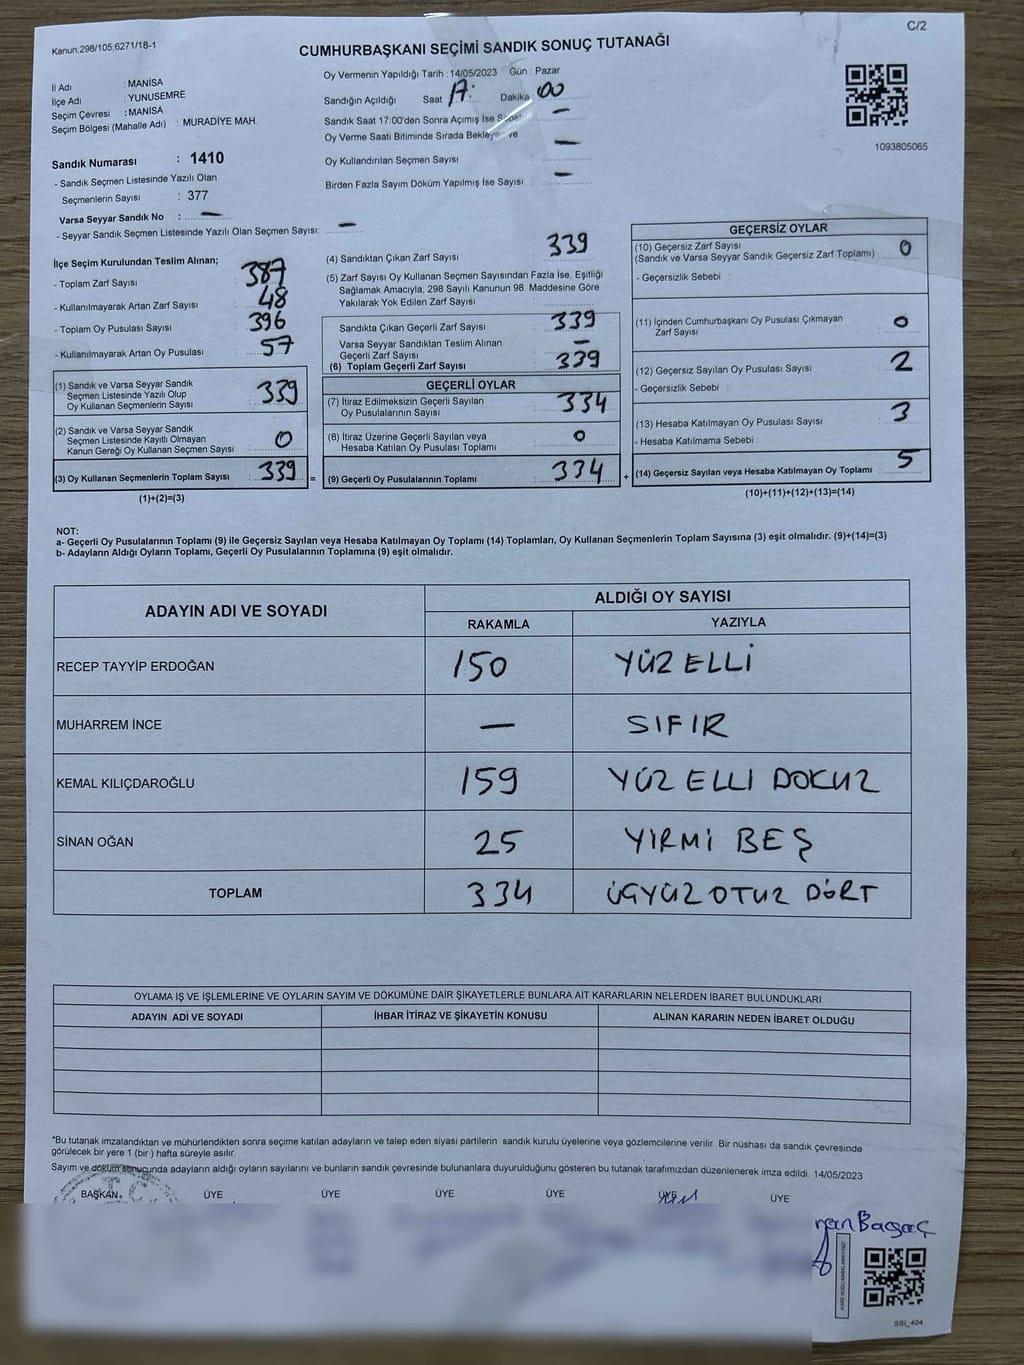 Kanun,298/105,6271/18-1
C/2
CUMHURBAŞKANI SEÇİMİ SANDIK SONUÇ TUTANAĞI
İl Adı : MANİSA
İlçe Adı : YUNUSEMRE
Seçim Çevresi : MANİSA
Seçim Bölgesi (Mahalle Adı) : MURADİYE MAH.
Sandık Numarası : 1410
- Sandık Seçmen Listesinde Yazılı Olan
Seçmenlerin Sayısı : 377
Varsa Seyyar Sandık No : —
- Seyyar Sandık Seçmen Listesinde Yazılı Olan Seçmen Sayısı: —
Oy Vermenin Yapıldığı Tarih : 14/05/2023 Gün : Pazar
Sandığın Açıldığı Saat 17: Dakika 00
Sandık Saat 17:00'den Sonra Açımış İse —
Oy Verme Saati Bitiminde Sırada ve —
Oy Kullandırılan Seçmen Sayısı —
Birden Fazla Sayım Döküm Yapılmış İse Sayısı : —
1093805065
İlçe Seçim Kurulundan Teslim Alınan;
- Toplam Zarf Sayısı : 387
- Kullanılmayarak Artan Zarf Sayısı : 48
- Toplam Oy Pusulası Sayısı : 396
- Kullanılmayarak Artan Oy Pusulası : 57
(1) Sandık ve Varsa Seyyar Sandık
Seçmen Listesinde Yazılı Olup
Oy Kullanan Seçmenlerin Sayısı : 339
(2) Sandık ve Varsa Seyyar Sandık
Seçmen Listesinde Kayıtlı Olmayan
Kanun Gereği Oy Kullanan Seçmen Sayısı : 0
(3) Oy Kullanan Seçmenlerin Toplam Sayısı : 339 =
(1)+(2)=(3)
(4) Sandıktan Çıkan Zarf Sayısı : 339
(5) Zarf Sayısı Oy Kullanan Seçmen Sayısından Fazla İse, Eşitliği
Sağlamak Amacıyla, 298 Sayılı Kanunun 98. Maddesine Göre
Yakılarak Yok Edilen Zarf Sayısı :
Sandıkta Çıkan Geçerli Zarf Sayısı : 339
Varsa Seyyar Sandıktan Teslim Alınan
Geçerli Zarf Sayısı : —
(6) Toplam Geçerli Zarf Sayısı : 339
GEÇERLİ OYLAR
(7) İtiraz Edilmeksizin Geçerli Sayılan
Oy Pusulalarının Sayısı : 334
(8) İtiraz Üzerine Geçerli Sayılan veya
Hesaba Katılan Oy Pusulası Toplamı : 0
(9) Geçerli Oy Pusulalarının Toplamı : 334 +
GEÇERSİZ OYLAR
(10) Geçersiz Zarf Sayısı : 0
(Sandık ve Varsa Seyyar Sandık Geçersiz Zarf Toplamı)
- Geçersizlik Sebebi :
(11) İçinden Cumhurbaşkanı Oy Pusulası Çıkmayan
Zarf Sayısı : 0
(12) Geçersiz Sayılan Oy Pusulası Sayısı : 2
- Geçersizlik Sebebi :
(13) Hesaba Katılmayan Oy Pusulası Sayısı : 3
- Hesaba Katılmama Sebebi :
(14) Geçersiz Sayılan veya Hesaba Katılmayan Oy Toplamı : 5
(10)+(11)+(12)+(13)=(14)
NOT:
a- Geçerli Oy Pusulalarının Toplamı (9) ile Geçersiz Sayılan veya Hesaba Katılmayan Oy Toplamı (14) Toplamları, Oy Kullanan Seçmenlerin Toplam Sayısına (3) eşit olmalıdır. (9)+(14)=(3)
b- Adayların Aldığı Oyların Toplamı, Geçerli Oy Pusulalarının Toplamına (9) eşit olmalıdır.
ADAYIN ADI VE SOYADI
ALDIĞI OY SAYISI
RAKAMLA YAZIYLA
RECEP TAYYİP ERDOĞAN 150 YÜZ ELLİ
MUHARREM İNCE — SIFIR
KEMAL KILIÇDAROĞLU 159 YÜZ ELLI DOKUZ
SİNAN OĞAN 25 YIRMİ BEŞ
TOPLAM 334 ÜÇYÜZ OTUZ DÖRT
OYLAMA İŞ VE İŞLEMLERİNE VE OYLARIN SAYIM VE DÖKÜMÜNE DAİR ŞİKAYETLERLE BUNLARA AİT KARARLARIN NELERDEN İBARET BULUNDUKLARI
ADAYIN ADI VE SOYADI İHBAR İTİRAZ VE ŞİKAYETİN KONUSU ALINAN KARARIN NEDEN İBARET OLDUĞU
*Bu tutanak imzalandıktan ve mühürlendikten sonra seçime katılan adayların ve talep eden siyasi partilerin sandık kurulu üyelerine veya gözlemcilerine verilir. Bir nüshası da sandık çevresinde
görülecek bir yere 1 (bir ) hafta süreyle asılır.
Sayım ve döküm sonucunda adayların aldığı oyların sayılarını ve bunların sandık çevresinde bulunanlara duyurulduğunu gösteren bu tutanak tarafımızdan düzenlenerek imza edildi. 14/05/2023
BAŞKAN ÜYE ÜYE ÜYE ÜYE ÜYE ÜYE
SSİ_404